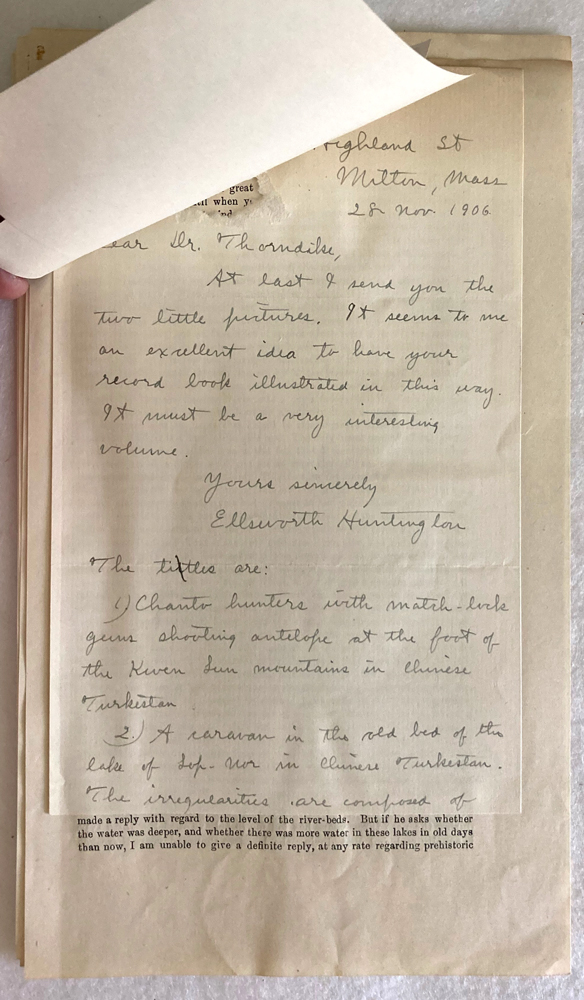 Highland St
Milton, Mass
great
when
28 Nov. 1906
Dear Dr. Thorndike,
At last I send you the
two little pictures. It seems to me
an excellent idea to have your
record book illustrated in this way.
It must be a very interesting
volume.
Yours sincerely
Ellsworth Huntington
The tittles are:
1) Chanto hunters with match-lock
guns shooting antelope at the foot of
the Kwen Lun mountains in Chinese
Turkestan.
2.) A caravan in the old bed of the
lake of Lop-Nor in Chinese Turkestan.
The irregularities are composed of
made a reply with regard to the level of the river-beds. But if he asks whether
the water was deeper, and whether there was more water in these lakes in old days
than now, I am unable to give a definite reply, at any rate regarding prehistoric